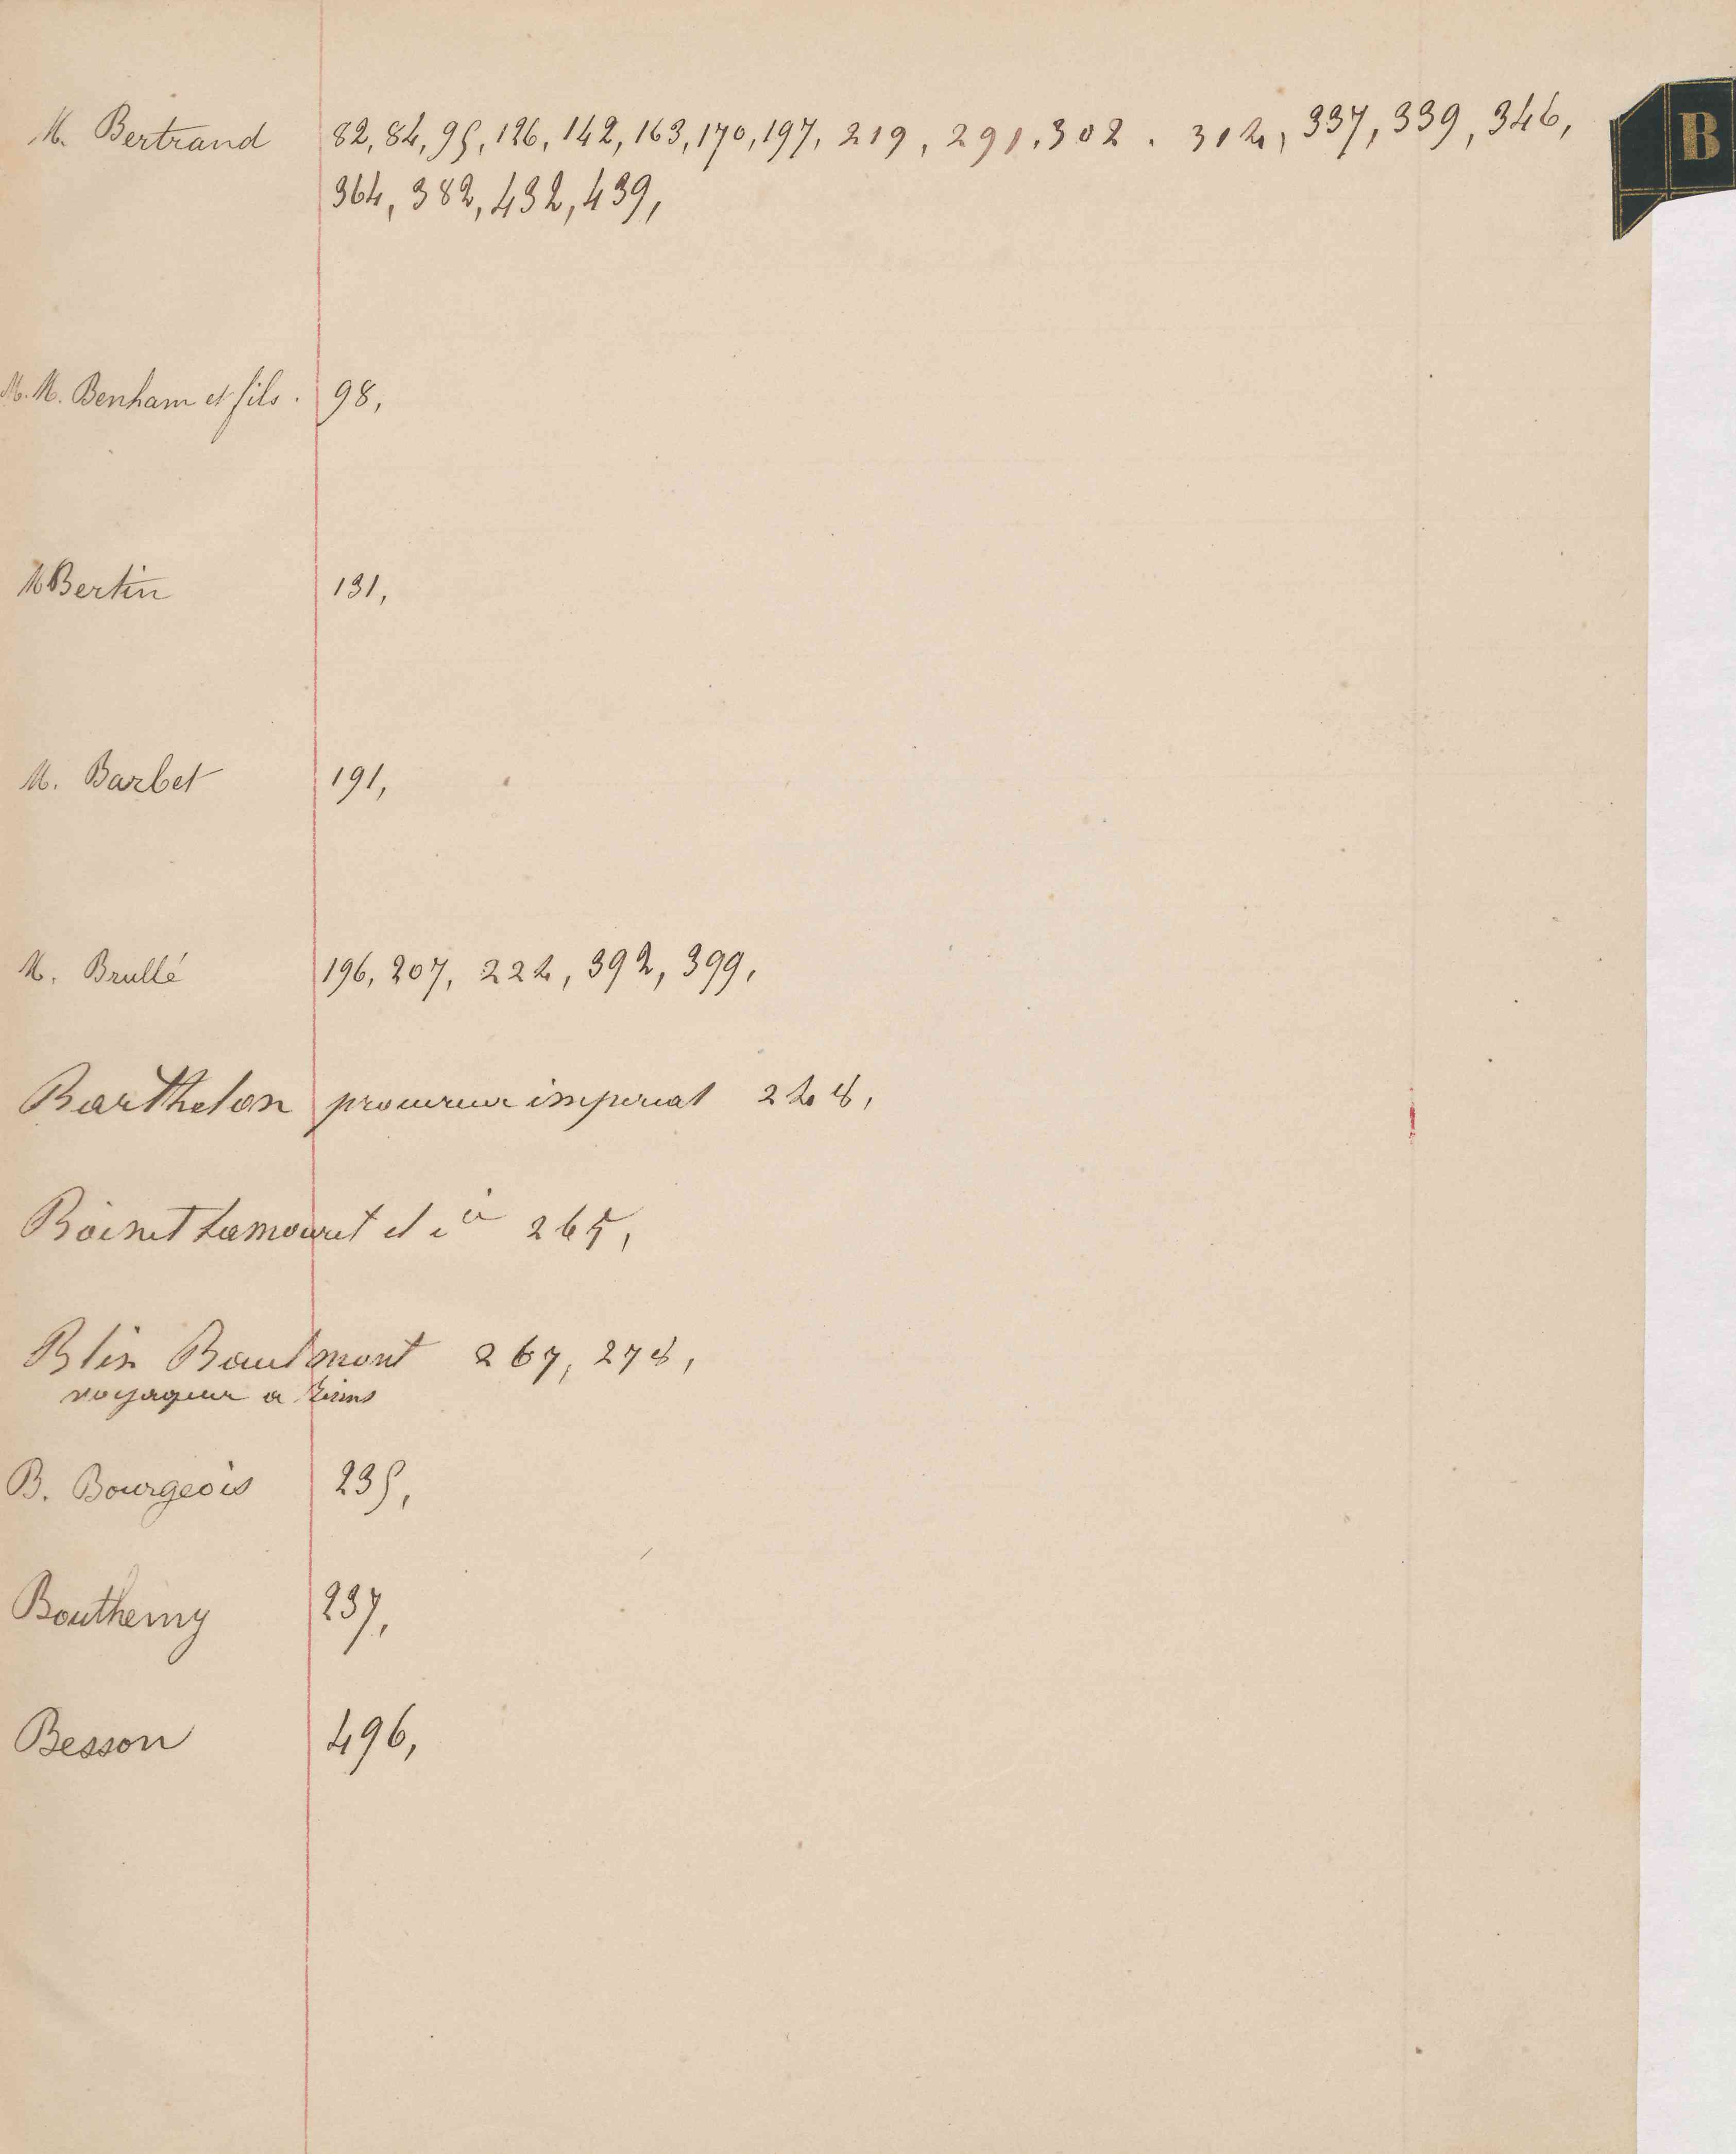 B
M. Bertrand 82, 84, 95, 126, 142, 163, 170, 197, 219, 291, 302. 312, 337, 339, 346,
364, 382, 432, 439,
M. M. Benham et fils. 98,
M Bertin 131,
M. Barbet 191,
M. Brullé 196, 207, 222, 392, 399,
Barthelon procureur imperial 228,
Boinet Lamouret et cie 265,
Blin Baulmont 267, 278,
voyageur a Reims
B. Bourgeois 235,
Bouthemy 237,
Besson 496,